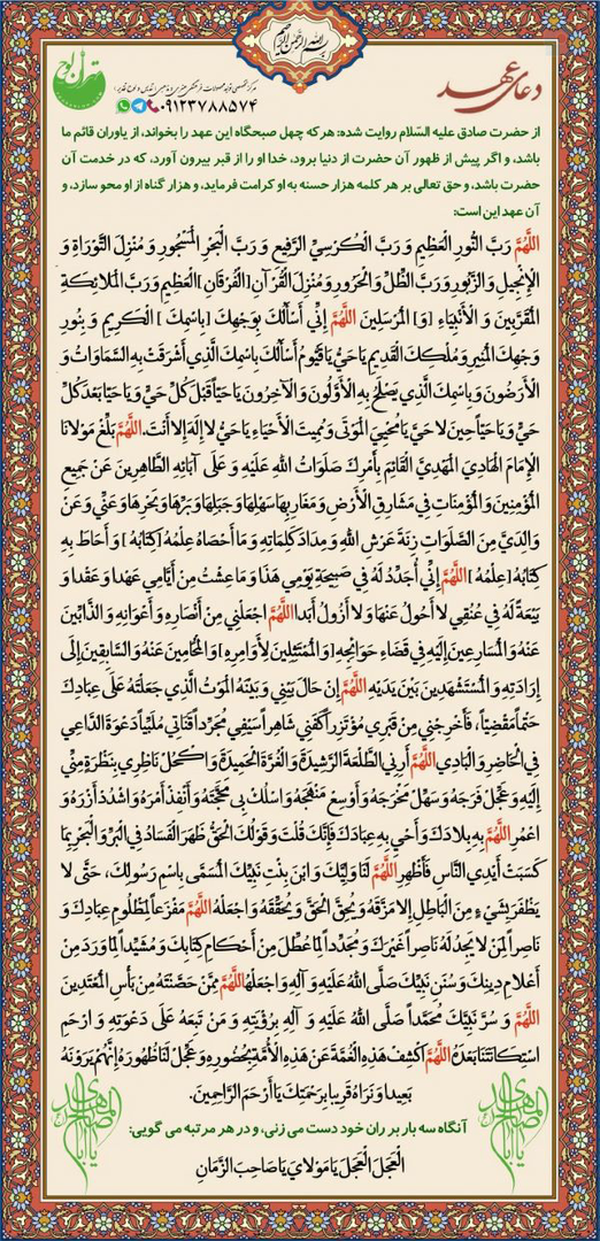 بسم الله الرحمن الرحیم
دعای عهد
تهران لوح
۰۹۱۲۳۷۸۸۵۷۴
از حضرت صادق علیه السّلام روایت شده: هر که چهل صبحگاه این عهد را بخواند، از یاوران قائم ما
باشد، و اگر پیش از ظهور آن حضرت از دنیا برود، خدا او را از قبر بیرون آورد، که در خدمت آن
حضرت باشد، و حق تعالی بر هر کلمه هزار حسنه به او کرامت فرماید، و هزار گناه از او محو سازد، و
آن عهد این است:
اللَّهُمَّ رَبَّ النُّورِ الْعَظِيمِ وَ رَبَّ الْكُرْسِيِّ الرَّفِيعِ وَ رَبَّ الْبَحْرِ الْمَسْجُورِ وَ مُنْزِلَ التَّوْرَاةِ وَ
الْإِنْجِيلِ وَ الزَّبُورِ وَ رَبَّ الظِّلِّ وَ الْحَرُورِ وَ مُنْزِلَ الْقُرْآنِ [الْفُرْقَانِ] الْعَظِيمِ وَ رَبَّ الْمَلائِكَةِ
الْمُقَرَّبِينَ وَ الْأَنْبِيَاءِ [وَ] الْمُرْسَلِينَ اللَّهُمَّ إِنِّي أَسْأَلُكَ بِوَجْهِكَ [بِاسْمِكَ] الْكَرِيمِ وَ بِنُورِ
وَجْهِكَ الْمُنِيرِ وَ مُلْكِكَ الْقَدِيمِ يَا حَيُّ يَا قَيُّومُ أَسْأَلُكَ بِاسْمِكَ الَّذِي أَشْرَقَتْ بِهِ السَّمَاوَاتُ وَ
الْأَرَضُونَ وَ بِاسْمِكَ الَّذِي يَصْلَحُ بِهِ الْأَوَّلُونَ وَ الْآخِرُونَ يَا حَيّاً قَبْلَ كُلِّ حَيٍّ وَ يَا حَيّاً بَعْدَ كُلِّ
حَيٍّ وَ يَا حَيّاً حِينَ لا حَيَّ يَا مُحْيِيَ الْمَوْتَى وَ مُمِيتَ الْأَحْيَاءِ يَا حَيُّ لا إِلَهَ إِلا أَنْتَ. اللَّهُمَّ بَلِّغْ مَوْلانَا
الْإِمَامَ الْهَادِيَ الْمَهْدِيَّ الْقَائِمَ بِأَمْرِكَ صَلَوَاتُ اللَّهِ عَلَيْهِ وَ عَلَى آبَائِهِ الطَّاهِرِينَ عَنْ جَمِيعِ
الْمُؤْمِنِينَ وَ الْمُؤْمِنَاتِ فِي مَشَارِقِ الْأَرْضِ وَ مَغَارِبِهَا سَهْلِهَا وَ جَبَلِهَا وَ بَرِّهَا وَ بَحْرِهَا وَ عَنِّي وَ عَنْ
وَالِدَيَّ مِنَ الصَّلَوَاتِ زِنَةَ عَرْشِ اللَّهِ وَ مِدَادَ كَلِمَاتِهِ وَ مَا أَحْصَاهُ عِلْمُهُ [كِتَابُهُ] وَ أَحَاطَ بِهِ
كِتَابُهُ [عِلْمُهُ] اللَّهُمَّ إِنِّي أُجَدِّدُ لَهُ فِي صَبِيحَةِ يَوْمِي هَذَا وَ مَا عِشْتُ مِنْ أَيَّامِي عَهْدا وَ عَقْدا وَ
بَيْعَةً لَهُ فِي عُنُقِي لا أَحُولُ عَنْهَا وَ لا أَزُولُ أَبَدا اللَّهُمَّ اجْعَلْنِي مِنْ أَنْصَارِهِ وَ أَعْوَانِهِ وَ الذَّابِّينَ
عَنْهُ وَ الْمُسَارِعِينَ إِلَيْهِ فِي قَضَاءِ حَوَائِجِهِ [وَ الْمُمْتَثِلِينَ لِأَوَامِرِهِ] وَ الْمُحَامِينَ عَنْهُ وَ السَّابِقِينَ إِلَى
إِرَادَتِهِ وَ الْمُسْتَشْهَدِينَ بَيْنَ يَدَيْهِ اللَّهُمَّ إِنْ حَالَ بَيْنِي وَ بَيْنَهُ الْمَوْتُ الَّذِي جَعَلْتَهُ عَلَى عِبَادِكَ
حَتْماً مَقْضِيّاً، فَأَخْرِجْنِي مِنْ قَبْرِي مُؤْتَزِراً كَفَنِي شَاهِراً سَيْفِي مُجَرِّداً قَنَاتِي مُلَبِّياً دَعْوَةَ الدَّاعِي
فِي الْحَاضِرِ وَ الْبَادِي اللَّهُمَّ أَرِنِي الطَّلْعَةَ الرَّشِيدَةَ وَ الْغُرَّةَ الْحَمِيدَةَ وَ اكْحُلْ نَاظِرِي بِنَظْرَةٍ مِنِّي
إِلَيْهِ وَ عَجِّلْ فَرَجَهُ وَ سَهِّلْ مَخْرَجَهُ وَ أَوْسِعْ مَنْهَجَهُ وَ اسْلُكْ بِي مَحَجَّتَهُ وَ أَنْفِذْ أَمْرَهُ وَ اشْدُدْ أَزْرَهُ وَ
اعْمُرِ اللَّهُمَّ بِهِ بِلادَكَ وَ أَحْيِ بِهِ عِبَادَكَ فَإِنَّكَ قُلْتَ وَ قَوْلُكَ الْحَقُّ ظَهَرَ الْفَسَادُ فِي الْبَرِّ وَ الْبَحْرِ بِمَا
كَسَبَتْ أَيْدِي النَّاسِ فَأَظْهِرِ اللَّهُمَّ لَنَا وَلِيَّكَ وَ ابْنَ بِنْتِ نَبِيِّكَ الْمُسَمَّى بِاسْمِ رَسُولِكَ، حَتَّى لا
يَظْفَرَ بِشَيْءٍ مِنَ الْبَاطِلِ إِلا مَزَّقَهُ وَ يُحِقَّ الْحَقَّ وَ يُحَقِّقَهُ وَ اجْعَلْهُ اللَّهُمَّ مَفْزَعاً لِمَظْلُومِ عِبَادِكَ وَ
نَاصِراً لِمَنْ لا يَجِدُ لَهُ نَاصِراً غَيْرَكَ وَ مُجَدِّداً لِمَا عُطِّلَ مِنْ أَحْكَامِ كِتَابِكَ وَ مُشَيِّداً لِمَا وَرَدَ مِنْ
أَعْلامِ دِينِكَ وَ سُنَنِ نَبِيِّكَ صَلَّى اللَّهُ عَلَيْهِ وَ آلِهِ وَ اجْعَلْهُ اللَّهُمَّ مِمَّنْ حَصَّنْتَهُ مِنْ بَأْسِ الْمُعْتَدِينَ
اللَّهُمَّ وَ سُرَّ نَبِيَّكَ مُحَمَّداً صَلَّى اللَّهُ عَلَيْهِ وَ آلِهِ بِرُؤْيَتِهِ وَ مَنْ تَبِعَهُ عَلَى دَعْوَتِهِ وَ ارْحَمِ
اسْتِكَانَتَنَا بَعْدَهُ اللَّهُمَّ اكْشِفْ هَذِهِ الْغُمَّةَ عَنْ هَذِهِ الْأُمَّةِ بِحُضُورِهِ وَ عَجِّلْ لَنَا ظُهُورَهُ إِنَّهُمْ يَرَوْنَهُ
بَعِيدا وَ نَرَاهُ قَرِيبا بِرَحْمَتِكَ يَا أَرْحَمَ الرَّاحِمِينَ.
آنگاه سه بار بر ران خود دست می زنی، و در هر مرتبه می گویی:
الْعَجَلَ الْعَجَلَ يَا مَوْلايَ يَا صَاحِبَ الزَّمَانِ